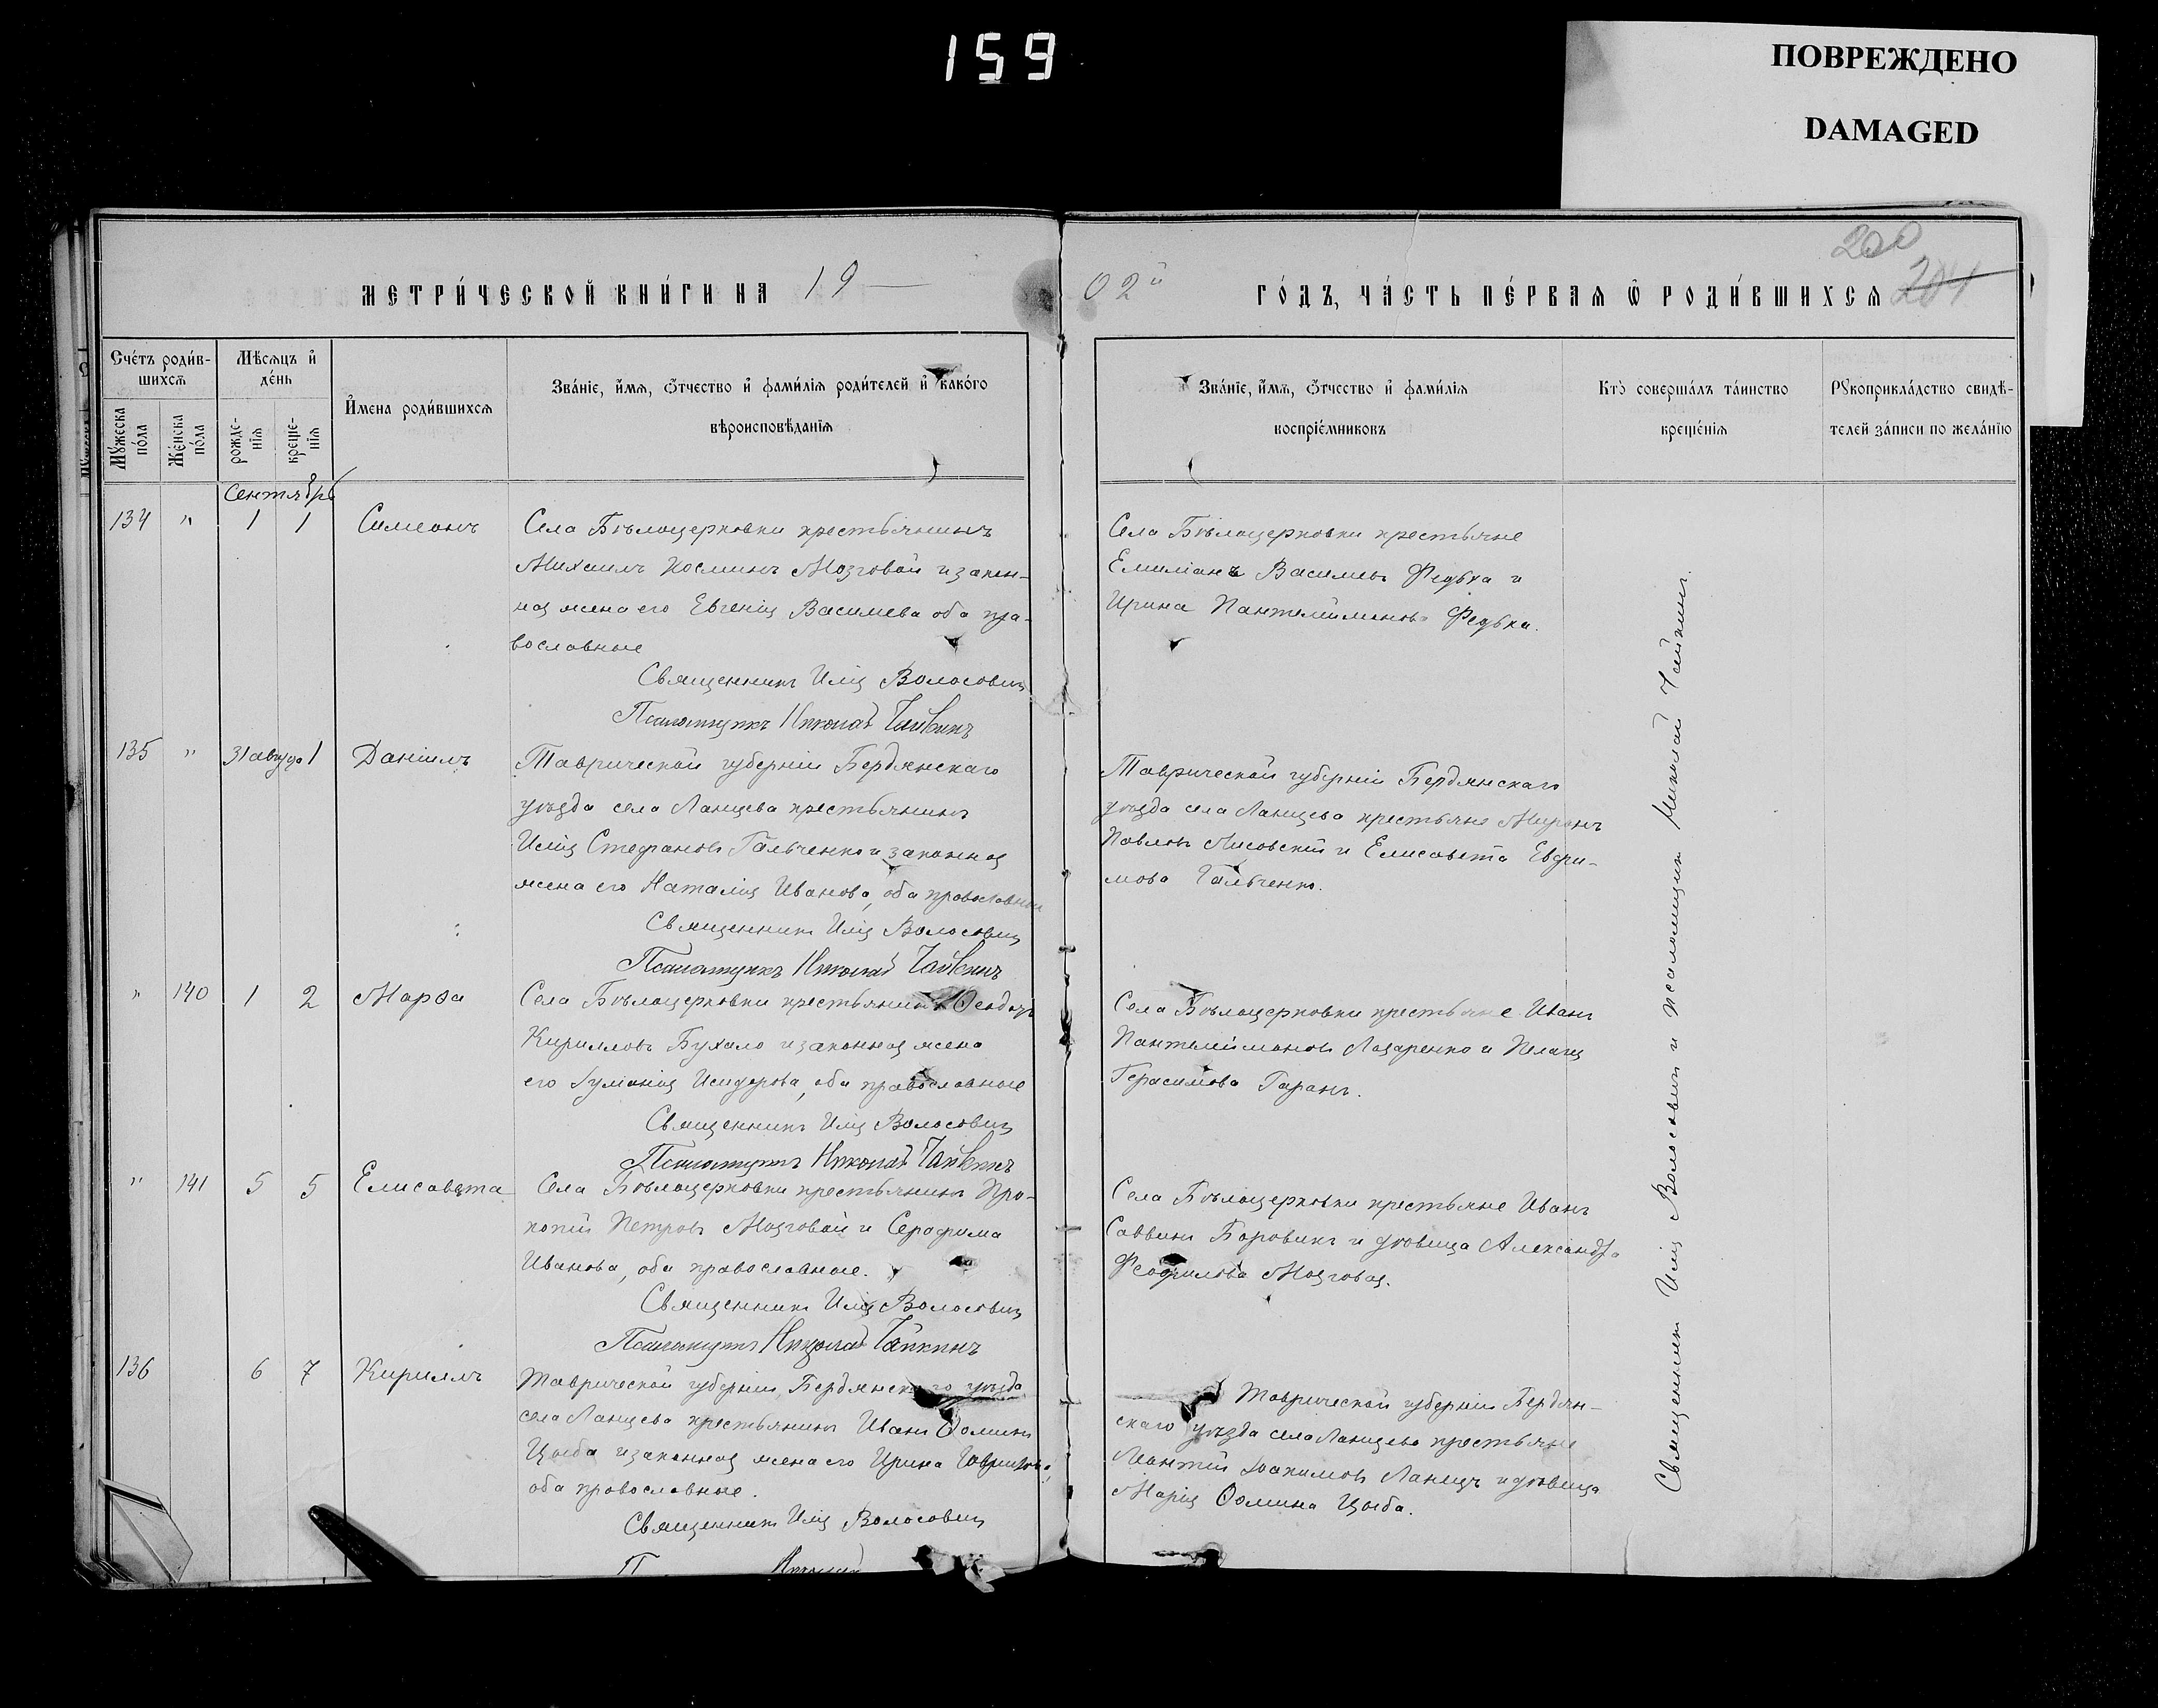 159
ПОВРЕЖДЕНО
DAMAGED
200
204
МЕТРИ́ЧЕСКОЙ КНИ́ГИ НА 19
02й ГО́ДЪ, ЧА́СТЬ ПЕ́РВАѦ Ѽ РОДИ́ВШИХСѦ
Сче́тъ роди́в-
шихсѧ
Мѣ́сѧцъ и҆
де́нь
Мꙋ́жеска
по́ла
Же́нска
по́ла
рожде-
нїѧ
креще-
нїѧ
И҆́мена роди́вшихсѧ
Зва́нїе, и҆́мѧ, ѻ҆́тчество и҆ фами́лїѧ роди́телей и҆ како́го
вѣроисповѣ́данїѧ
Зва́нїе, и҆́мѧ, ѻ҆́тчество и҆ фами́лїѧ
воспрїе́мниковъ
Кто̀ соверша́лъ та́инство
креще́нїѧ
Рꙋкоприкла́дство свидѣ́-
телей за́писи по жела́нїю
Сентябрь
134 " 1 1 Симеонъ
Села Бѣлоцерковки крестьянинъ
Михаилъ Косминъ Мозговой и закон-
ная жена его Евгенія Василiева оба пра-
вославные
Священникъ Илія Волосович
Псаломщикъ Николай Чайкинъ
Села Бѣлоцерковки крестьяне
Емиліанъ Василіевъ Федька и
Ирина Пантелиимонова Федька.
135 " 31 августа 1 Даніилъ
Таврической губерніи Бердянскаго
уѣзда села Ланцева крестьянинъ
Илія Стефановъ Гальченко и законная
жена его Наталія Иванова, оба православные
Священникъ Илія Волосович
Псаломщикъ Николай Чайкинъ
Таврической губерніи Бердянскаго
уѣзда села Ланцева крестьяне Миронъ
Павловъ Лисовскій и Елисавета Евфи-
мова Гальченко.
" 140 1 2 Марѳа
Села Бѣлоцерковки крестьянинъ Ѳеодоръ
Кирилловъ Бухало и законная жена
его Іуліанія Исидорова, оба православные
Священникъ Илія Волосович
Псаломщикъ Николай Чайкинъ
Села Бѣлоцерковки крестьяне Иванъ
Пантелиимоновъ Лазаренко и Пелагія
Герасимова Гаранъ.
" 141 5 5 Елисавета
Села Бѣлоцерковки крестьянинъ Про-
копій Петровъ Мозговой и Серафима
Иванова, оба православные.
Священникъ Илія Волосович
Псаломщикъ Николай Чайкинъ
Села Бѣлоцерковки крестьяне Иванъ
Саввинъ Боровикъ и дѣвица Александра
Феофилова Мозговая.
136 6 7 Кириллъ
Таврической губерніи Бердянскаго уѣзда
села Ланцева крестьянинъ Иванъ Ѳоминъ
Цыба и законная жена его Ирина Гаврилова,
оба православные.
Священникъ Илія Волосович
Таврической губерніи Бердян-
скаго уѣзда села Ланцева крестьяне
Леонтій Іоакимовъ Ланецъ и дѣвица
Марія Ѳомина Цыба.
Священникъ Илія Волосович и псаломщикъ Николай Чайкинъ.